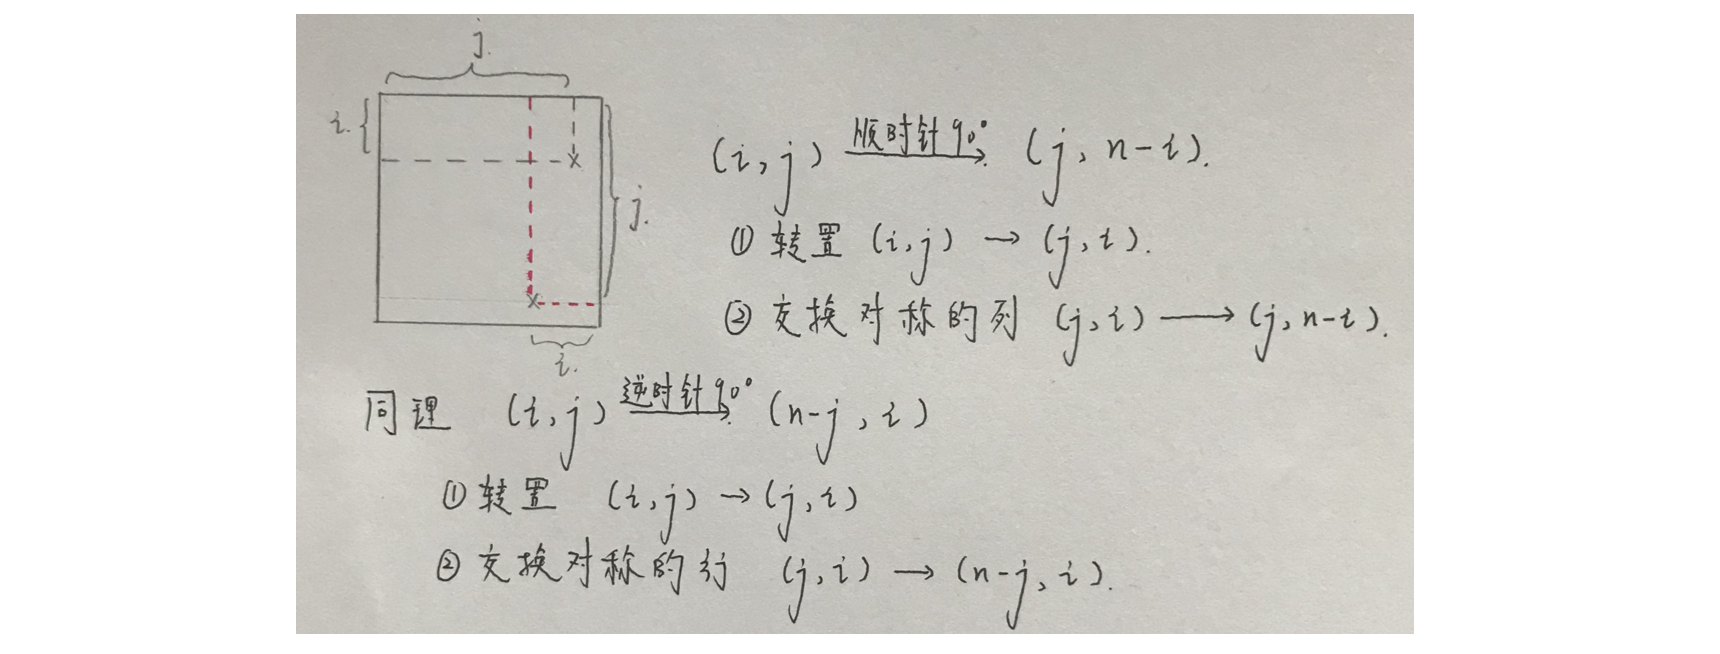 j.
i.
j.
i.
(i, j) 顺时针90° (j, n-i).
① 转置 (i, j) → (j, i).
② 交换对称的列 (j, i) → (j, n-i).
同理 (i, j) 逆时针90° (n-j, i)
① 转置 (i, j) → (j, i)
② 交换对称的行 (j, i) → (n-j, i).